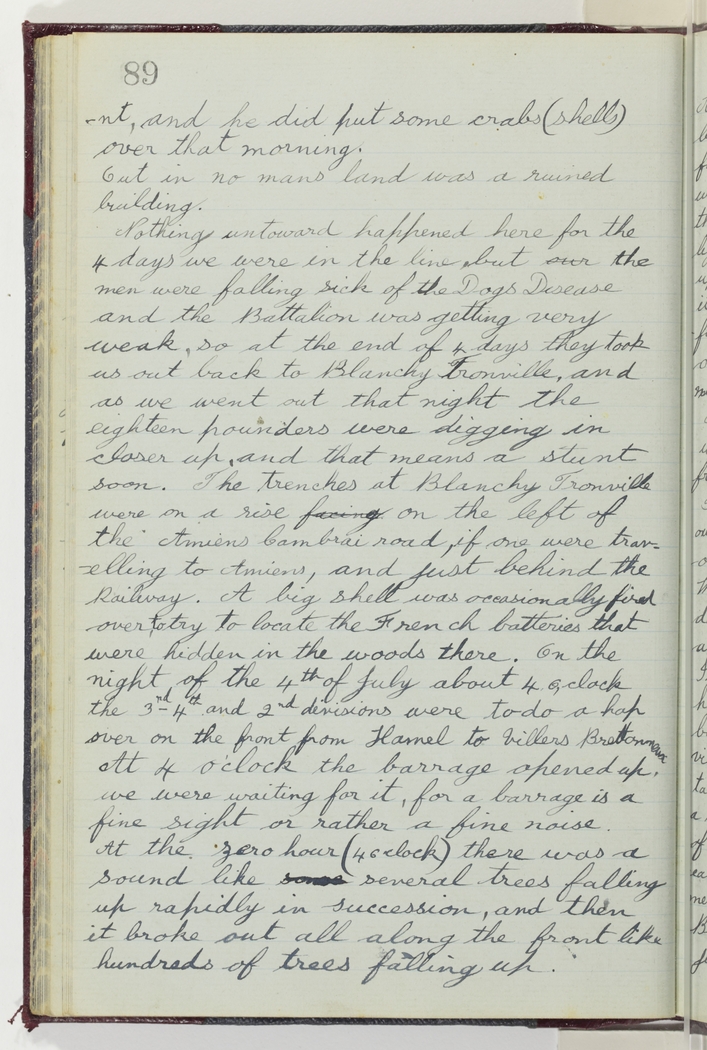 89
-nt, and he did put some crabs (shells)
over that morning.
Out in no mans land was a ruined
building.
Nothing untoward happened here for the
4 days we were in the line, but our the
men were falling sick of the Dogs Disease
and the Battalion was getting very
weak, so at the end of 4 days they took
us out back to Blanchy Tronville, and
as we went out that night the
eighteen pounders were digging in
closer up, and that means a stunt
soon. The trenches at Blanchy Tronville
were on a rise facing on the left of
the Amiens Cambrai road, if one were trav-
-elling to Amiens, and just behind the
Railway. A big shell was occasionally fired
over to try to locate the French batteries that
were hidden in the woods there. On the
night of the 4th of July about 4 o,clock
the 3rd - 4th and 2nd divisions were to do a hop
over on the front from Hamel to Villers Brettonneux
At 4 o'clock the barrage opened up.
we were waiting for it, for a barrage is a
fine sight or rather a fine noise.
At the zero hour (4 oclock) there was a
sound like some several trees falling
up rapidly in succession, and then
it broke out all along the front like
hundreds of trees falling up.